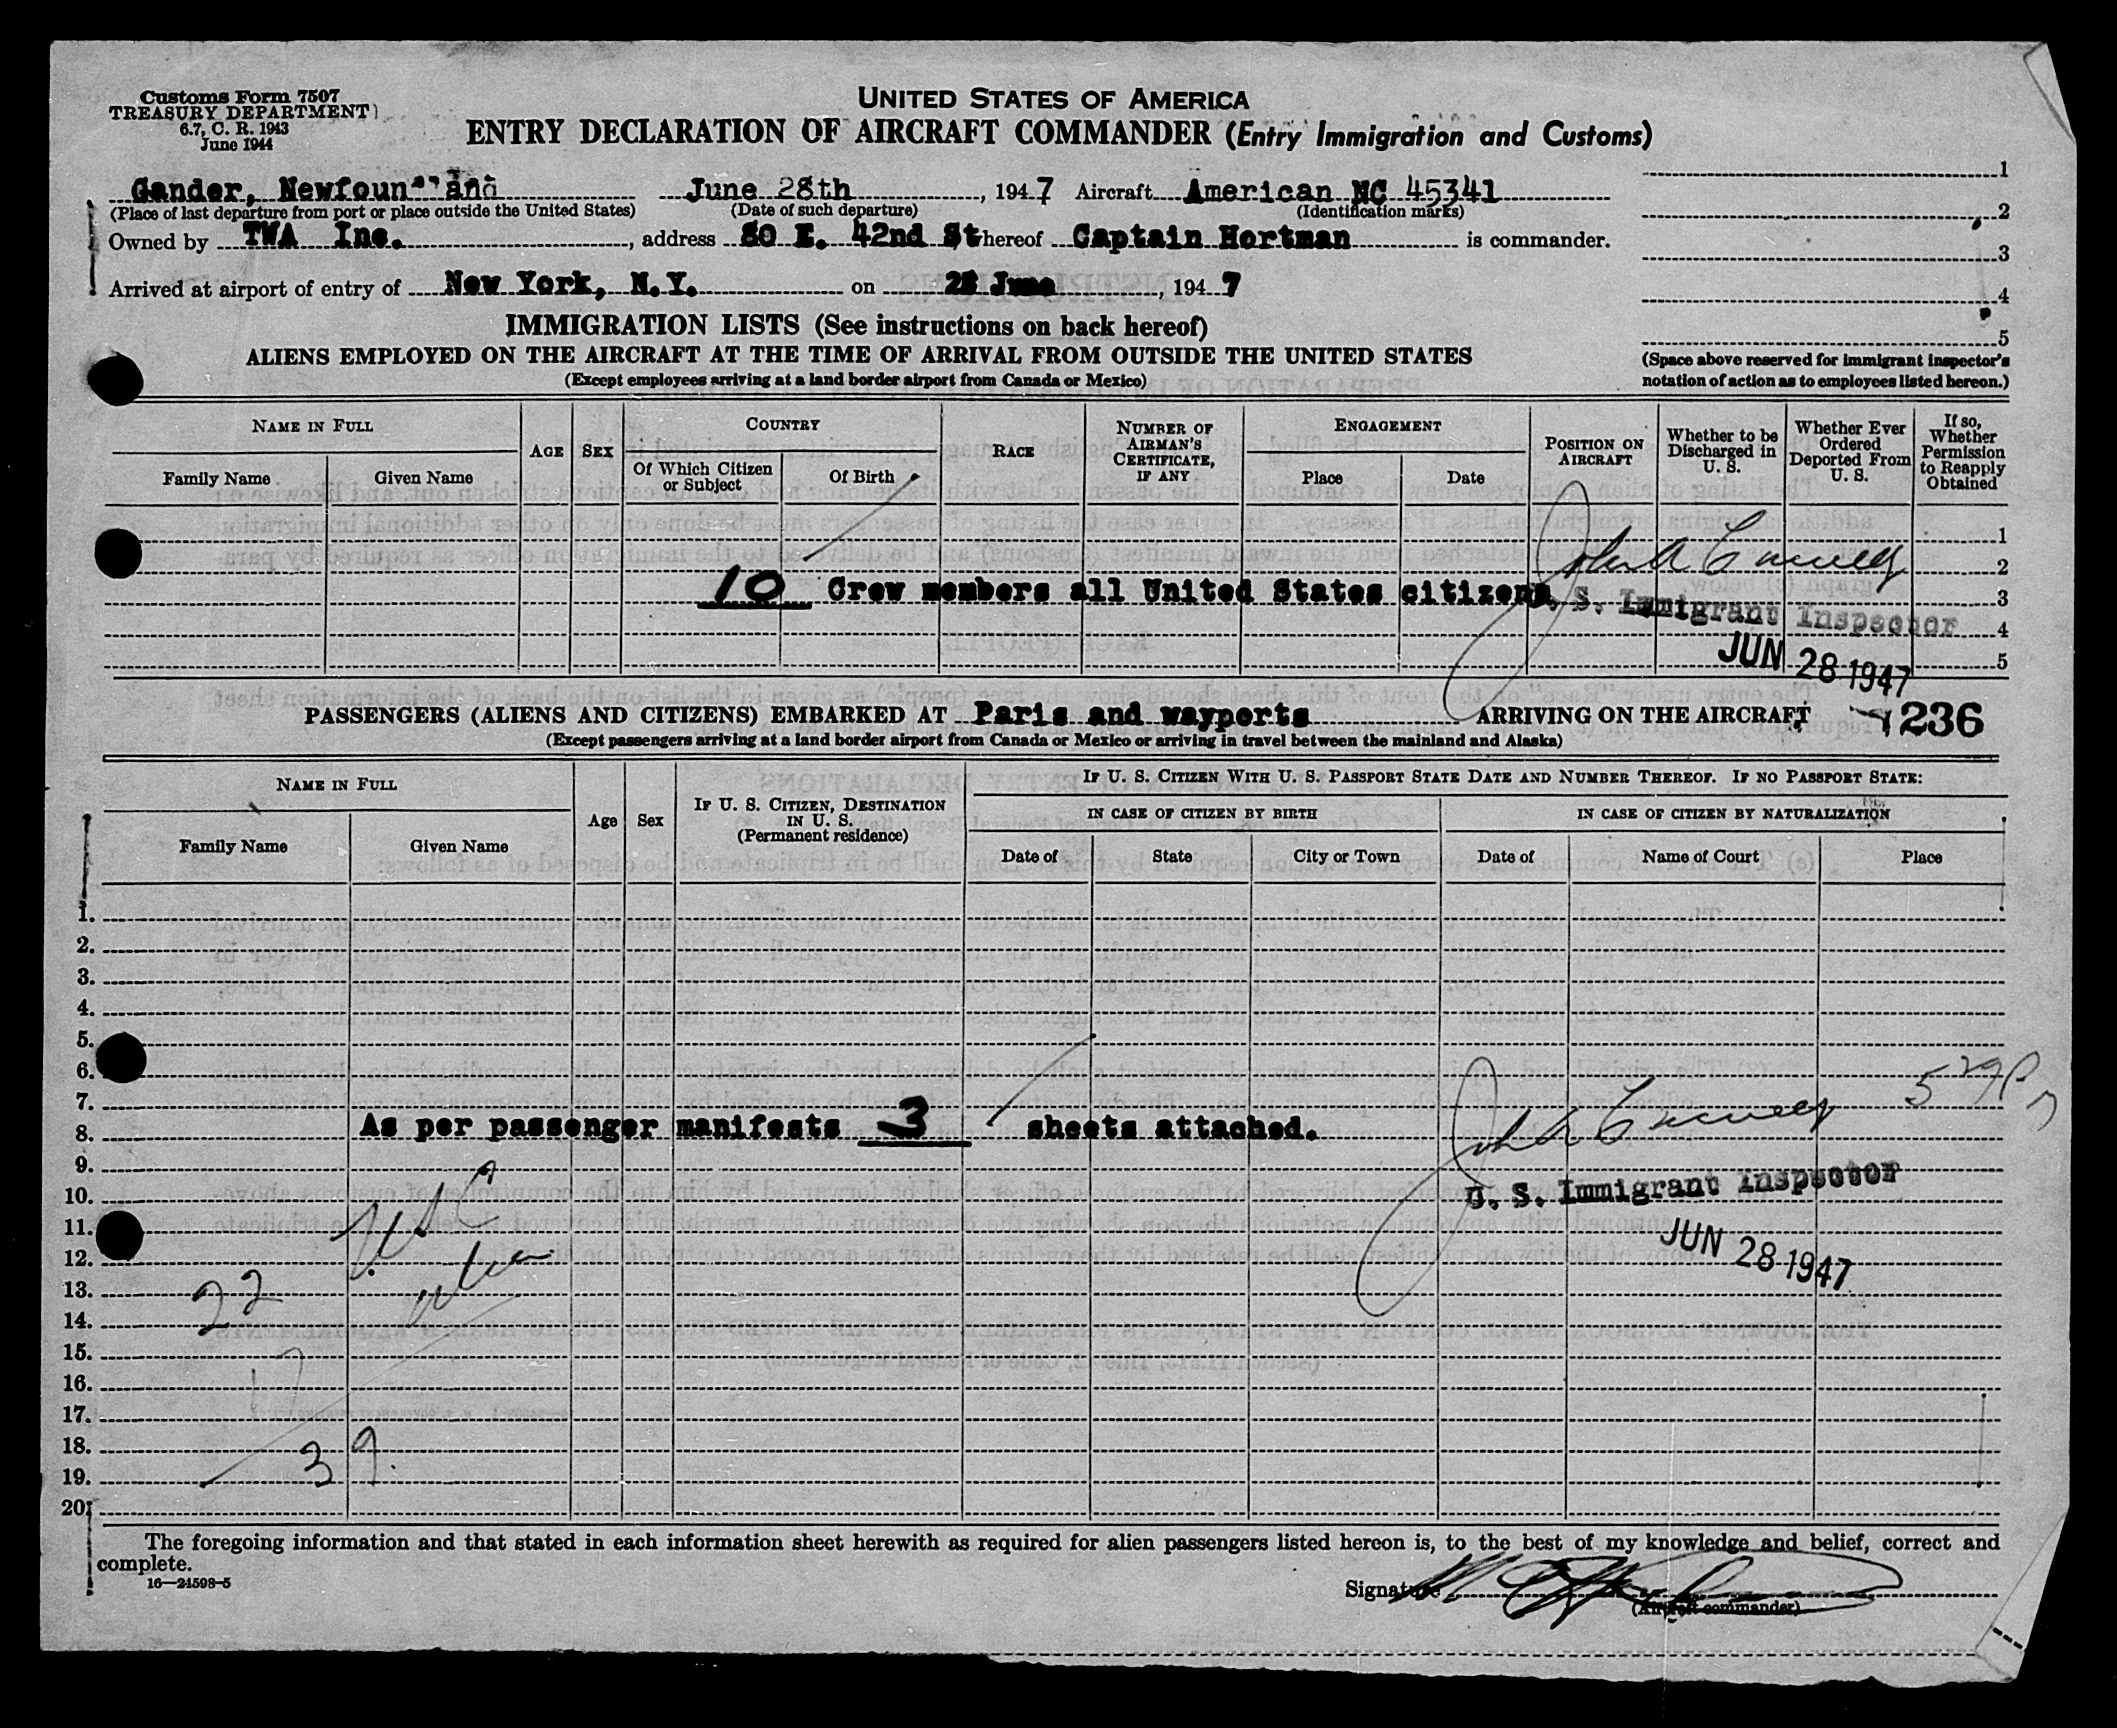 Customs Form 7507
TREASURY DEPARTMENT
6.7, C. R. 1943
June 1944
UNITED STATES OF AMERICA
ENTRY DECLARATION OF AIRCRAFT COMMANDER (Entry Immigration and Customs)
Gander, Newfoundland June 28th, 1947 Aircraft American NC 45341
(Place of last departure from port or place outside the United States) (Date of such departure) (Identification marks)
Owned by TWA Inc., address 80 E. 42nd St hereof Captain Hortman is commander.
Arrived at airport of entry of New York, N.Y. on 28 June, 1947
1
2
3
4
5
(Space above reserved for immigrant inspector's
notation of action as to employees listed hereon.)
IMMIGRATION LISTS (See instructions on back hereof)
ALIENS EMPLOYED ON THE AIRCRAFT AT THE TIME OF ARRIVAL FROM OUTSIDE THE UNITED STATES
(Except employees arriving at a land border airport from Canada or Mexico)
NAME IN FULL
Family Name Given Name
AGE SEX
COUNTRY
Of Which Citizen or Subject Of Birth
RACE
NUMBER OF AIRMAN'S CERTIFICATE, IF ANY
ENGAGEMENT
Place Date
POSITION ON AIRCRAFT
Whether to be Discharged in U. S.
Whether Ever Ordered Deported From U. S.
If so, Whether Permission to Reapply Obtained
1
2
10 Crew members all United States citizens. 3
U. S. Immigrant Inspector 4
JUN 28 1947 5
PASSENGERS (ALIENS AND CITIZENS) EMBARKED AT Paris and wayports ARRIVING ON THE AIRCRAFT 236
(Except passengers arriving at a land border airport from Canada or Mexico or arriving in travel between the mainland and Alaska)
NAME IN FULL
Family Name Given Name
Age Sex
IF U. S. CITIZEN, DESTINATION IN U. S.
(Permanent residence)
IF U. S. CITIZEN WITH U. S. PASSPORT STATE DATE AND NUMBER THEREOF. IF NO PASSPORT STATE:
IN CASE OF CITIZEN BY BIRTH IN CASE OF CITIZEN BY NATURALIZATION
Date of State City or Town Date of Name of Court Place
1.
2.
3.
4.
5.
6.
7.
8. As per passenger manifests 3 sheets attached.
9.
10. U. S. Immigrant Inspector
11. USC
12. JUN 28 1947
13. 22 alien
14.
15.
16. 17
17.
18.
19. 39.
20.
The foregoing information and that stated in each information sheet herewith as required for alien passengers listed hereon is, to the best of my knowledge and belief, correct and
complete.
16—24598-5
Signature
(Aircraft commander)